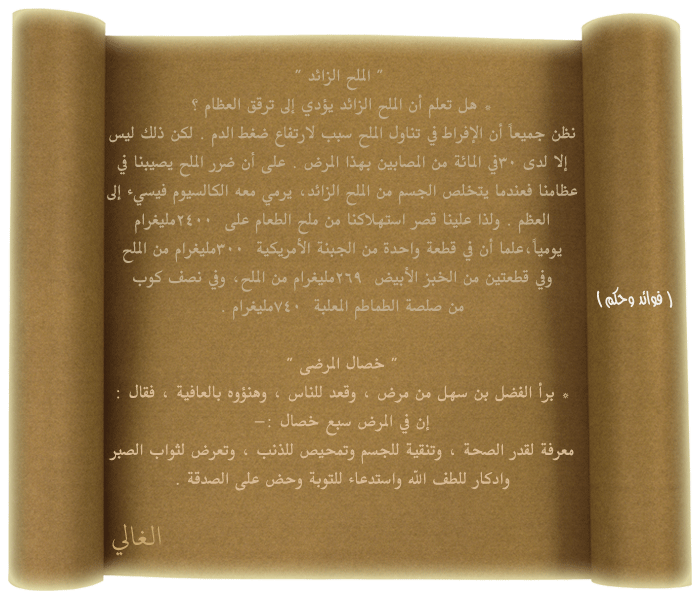 " الملح الزائد "
* هل تعلم أن الملح الزائد يؤدي إلى ترقق العظام ؟
نظن جميعاً أن الإفراط في تناول الملح سبب لارتفاع ضغط الدم . لكن ذلك ليس
إلا لدى ٣٠في المائة من المصابين بهذا المرض . على أن ضرر الملح يصيبنا في
عظامنا فعندما يتخلص الجسم من الملح الزائد، يرمي معه الكالسيوم فيسيء إلى
العظم . ولذا علينا قصر استهلاكنا من ملح الطعام على ٢٤٠٠مليغرام
يومياً،علما أن في قطعة واحدة من الجبنة الأمريكية ٣٠٠مليغرام من الملح
وفي قطعتين من الخبز الأبيض ٢٦٩مليغرام من الملح، وفي نصف كوب
من صلصة الطماطم المعلبة ٧٤٠مليغرام .
( فوائد وحكم )
" خصال المرضى "
* برأ الفضل بن سهل من مرض ، وقعد للناس ، وهنؤوه بالعافية ، فقال :
إن في المرض سبع خصال :-
معرفة لقدر الصحة ، وتنقية للجسم وتمحيص للذنب ، وتعرض لثواب الصبر
وادكار للطف الله واستدعاء للتوبة وحض على الصدقة .
الغالي